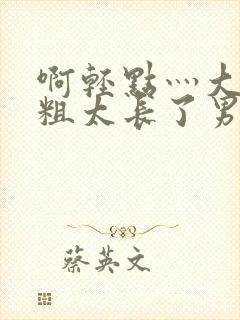 啊輕點灬大
粗太長了男
蔡英文